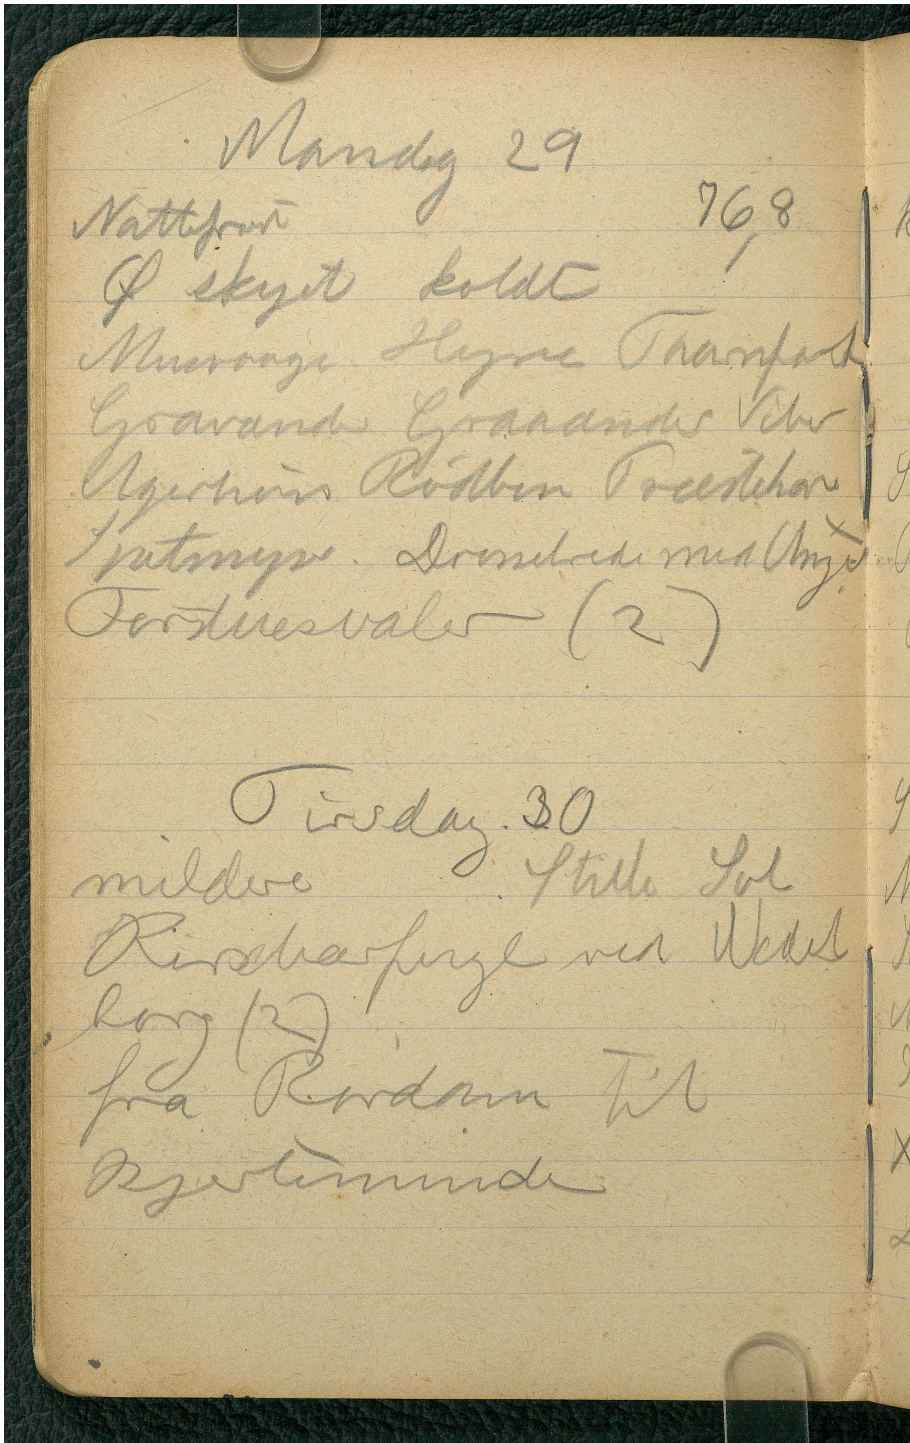 Mandag 29
Nattefrost 76,8
Ø skyet koldt
Musvaage Hejre Taarnfalk
Gravander Graaander Viber
Agerhøns Rødben Præstekrave
Spetmejse. Drosselrede med Unger
Forstuesvaler (2)
Tirsdag. 30
mildere Stille Sol
Kirsebærfugl ved Wedels
borg (2)
fra Rørdam til
Kjerteminde